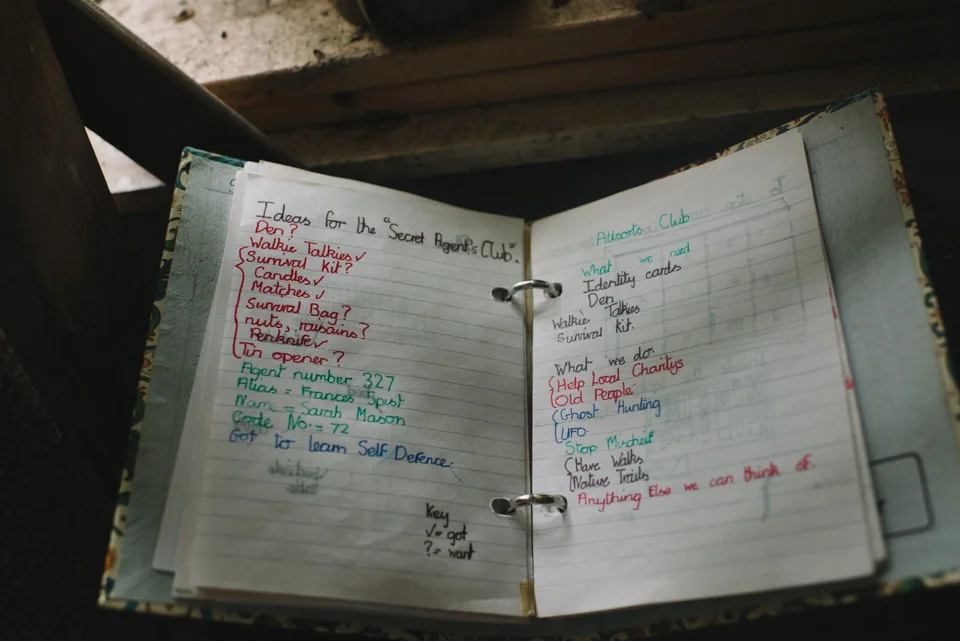 Ideas for the "Secret Agent's Club".
Den?
Walkie Talkies ✓
Survival Kit?
Candles ✓
Matches ✓
Survival Bag?
nuts, raisains?
Penknife ✓
Tin opener?
Agent number 327
Alias = Frances Spust
Name = Sarah Mason
Code No. = 72
Got to learn Self Defence.
Key
✓ = got
? = want
Allsorts Club
What we need
Identity cards
Den
Walkie Talkies
Survival Kit.
What we do.
Help Local Charitys
Old People
Ghost Hunting
UFO.
Stop Mischeif
Have Walks
Nature Trails
Anything Else we can think of.